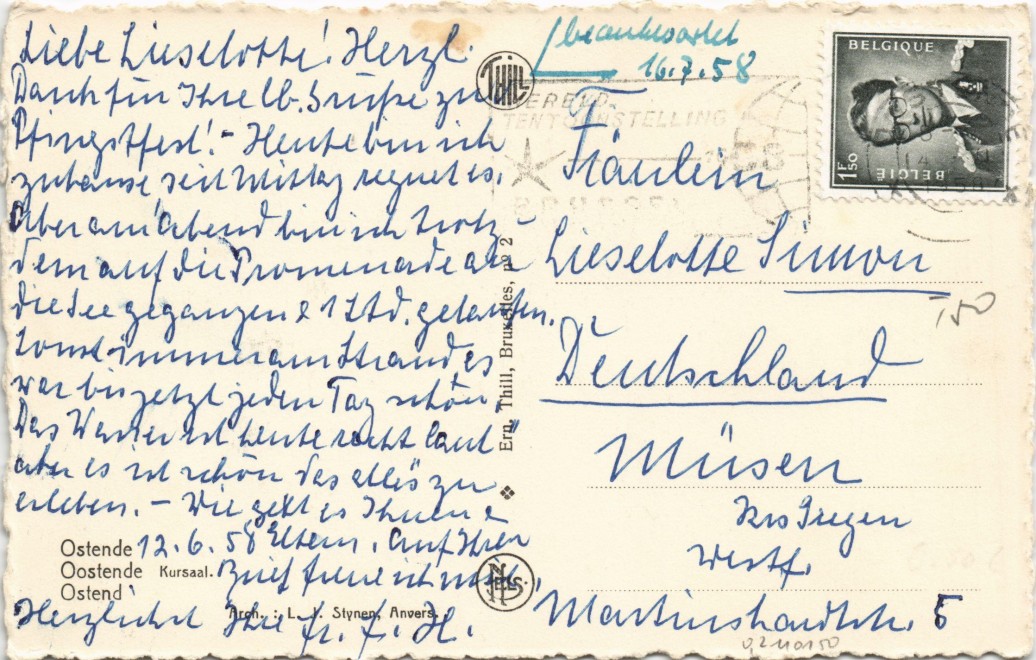 Liebe Lieselotte! Herzl.
Dank für Ihre lb. Grüße zu
Pfingstfest! - Heute bin ich
zuhause seit Mittag regnet es.
Aber am Abend bin ich trotz-
dem auf die Promenade an
die See gegangen & 1 Std. gelaufen.
Sonst immer am Strand es
war bis jetzt jeden Tag schön.
Das Wasser ist heute recht laut
aber es ist schön das alles zu
erleben. - Wie geht es Ihnen &
Eltern. Auf Ihren
Brief freue ich mich.
Herzlichst Ihre fr. H.
12.6.58
Ostende
Oostende Kursaal.
Ostend
Arch. : L. J. Stynen, Anvers.
THILL
Ern. Thill, Bruxelles, No 2
NELS
beantwortet
16.7.58
WERELD-
TENTOONSTELLING
BRUSSEL
14
1958
BELGIQUE
1F50
BELGIË
Fräulein
Lieselotte Simon
Deutschland
Müsen
Krs Siegen
Westf.
Martinshardtstr. 5
-,50